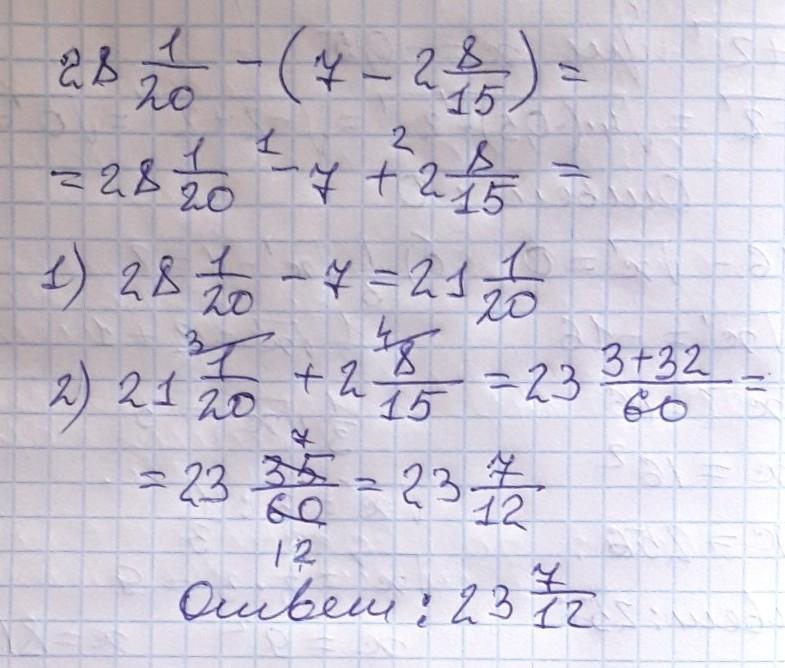 28 1/20 - (7 - 2 8/15) =
= 28 1/20 ¹- 7 +² 2 8/15 =
1) 28 1/20 - 7 = 21 1/20
2) 21 ³ 1/20 + 2 ⁴ 8/15 = 23 3+32/60 =
= 23 35/60 ⁷ ₁₂ = 23 7/12
Ответ: 23 7/12